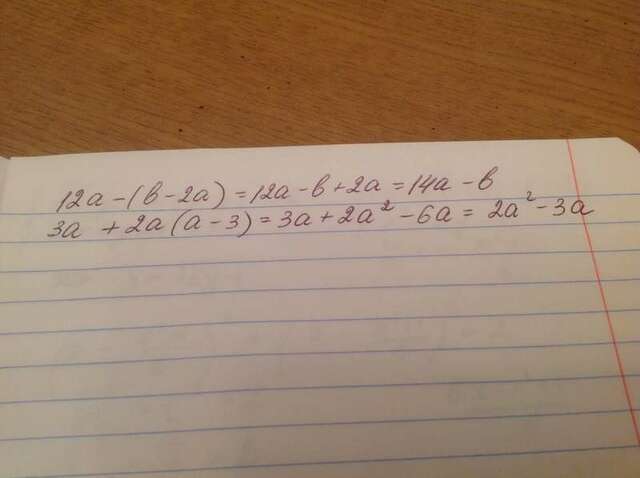 12a - (b - 2a) = 12a - b + 2a = 14a - b
3a + 2a(a - 3) = 3a + 2a² - 6a = 2a² - 3a